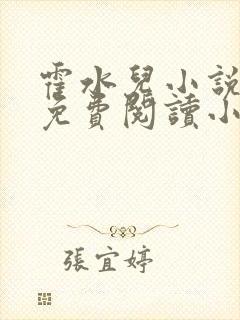 霍水兒小說
免費閱讀小
張宜婷